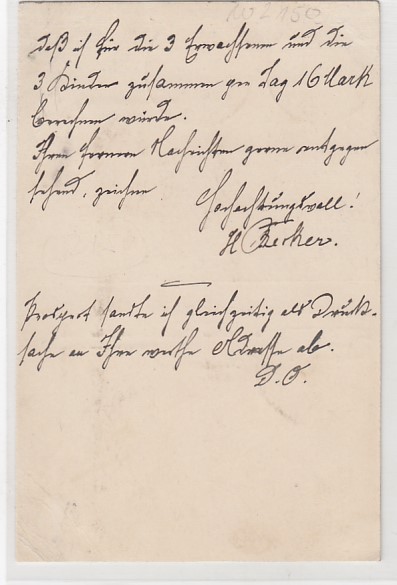 daß ich für die 3 Erwachsenen und die
3 Kinder zusammen pro Tag 16 Mark
berechnen würde.
Ihren ferneren Nachrichten gerne entgegen
sehend, zeichne
Hochachtungsvoll!
H Becker.
Prospect sandte ich gleichzeitig als Druck-
sache an Ihre werthe Adresse ab.
D. O.